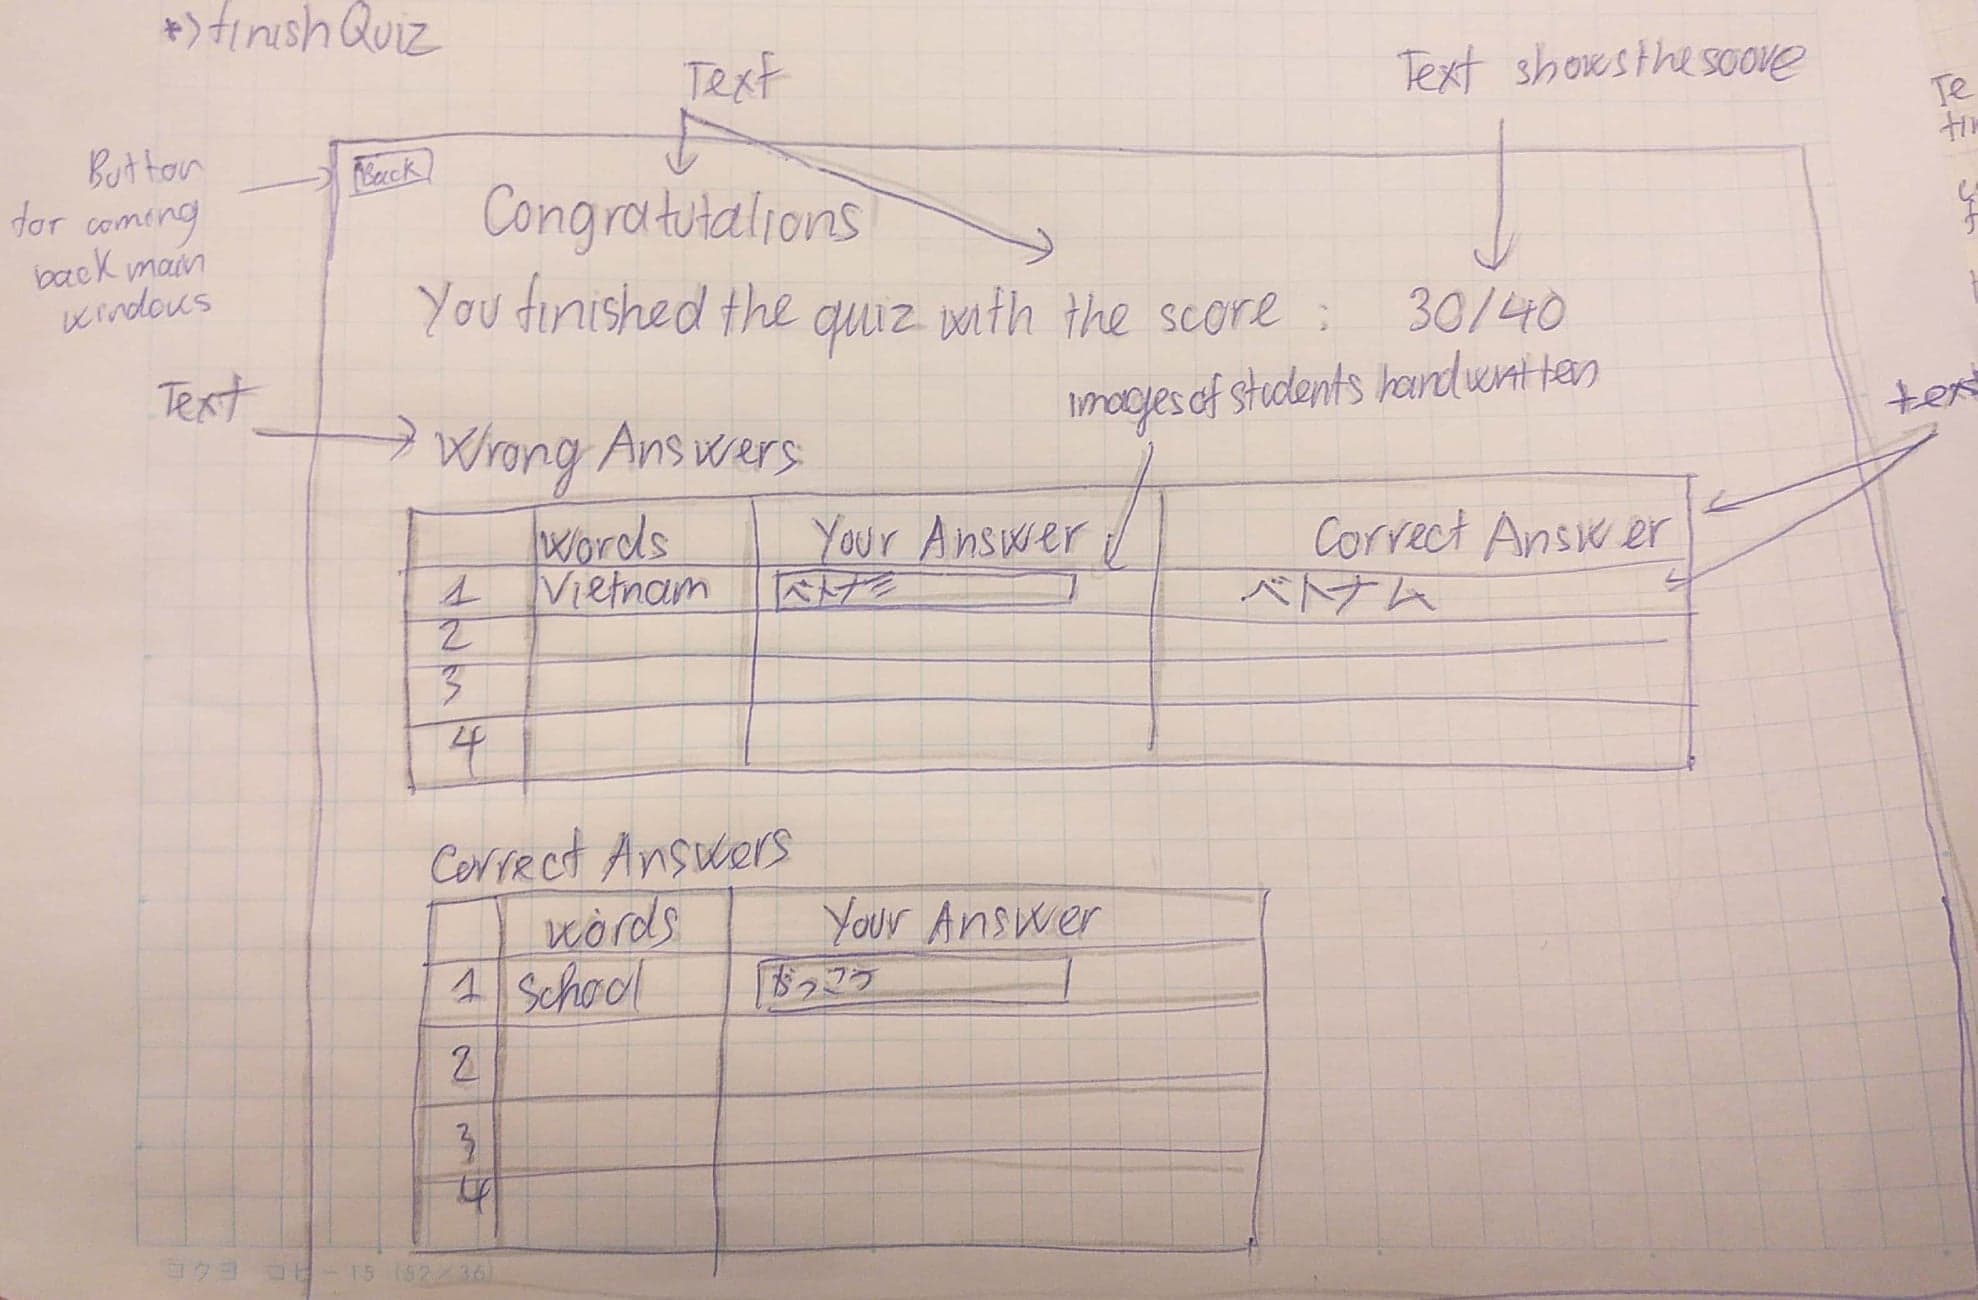 *) finishQuiz
Text
Text shows the soore
Te
Button
for coming
back main
windows
Back
Congratutalions
You finished the quiz with the score : 30/40
images of students handwritten
Text
text
Wrong Answers
Words Your Answer Correct Answer
1 Vietnam ベトナミ ベトナム
2
3
4
Correct Answers
words Your Answer
1 School がっこう
2
3
4
コクヨ コピー15 (52×36)